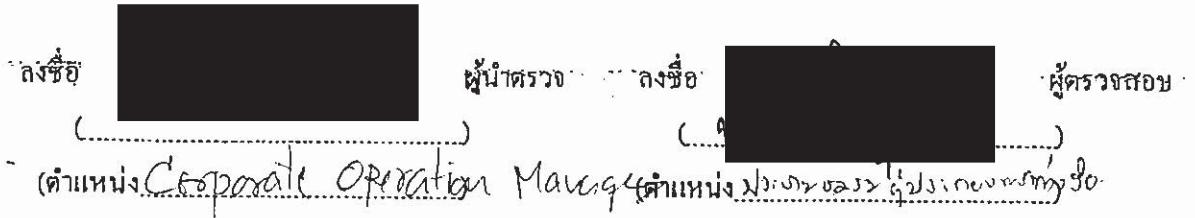 ลงชื่อ ผู้นำตรวจ ลงชื่อ ผู้ตรวจสอบ
(....................) (....................)
(ตำแหน่ง Corporate Operation Manager (ตำแหน่ง